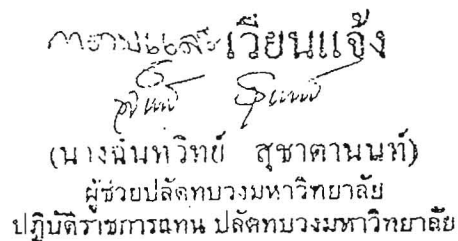 กราบเรียนและเวียนแจ้ง
(นางฉันทวิทย์ สุชาตานนท์)
ผู้ช่วยปลัดทบวงมหาวิทยาลัย
ปฏิบัติราชการแทน ปลัดทบวงมหาวิทยาลัย